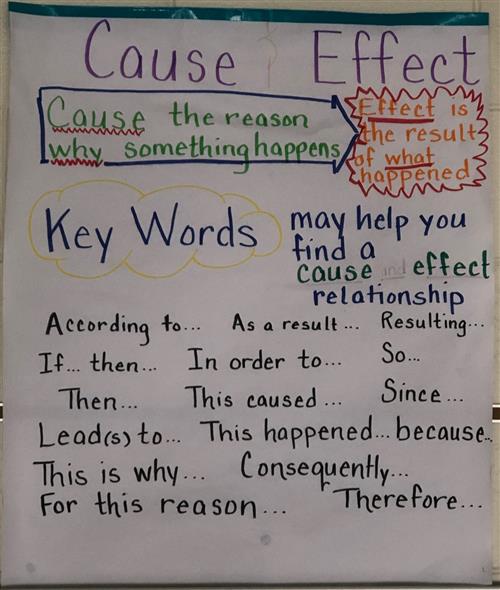 Cause & Effect
Cause the reason
why something happens
Effect is
the result
of what
happened
Key Words
may help you
find a
cause and effect
relationship
According to... As a result... Resulting...
If... then... In order to... So...
Then... This caused... Since...
Lead(s) to... This happened... because...
This is why... Consequently...
For this reason... Therefore...